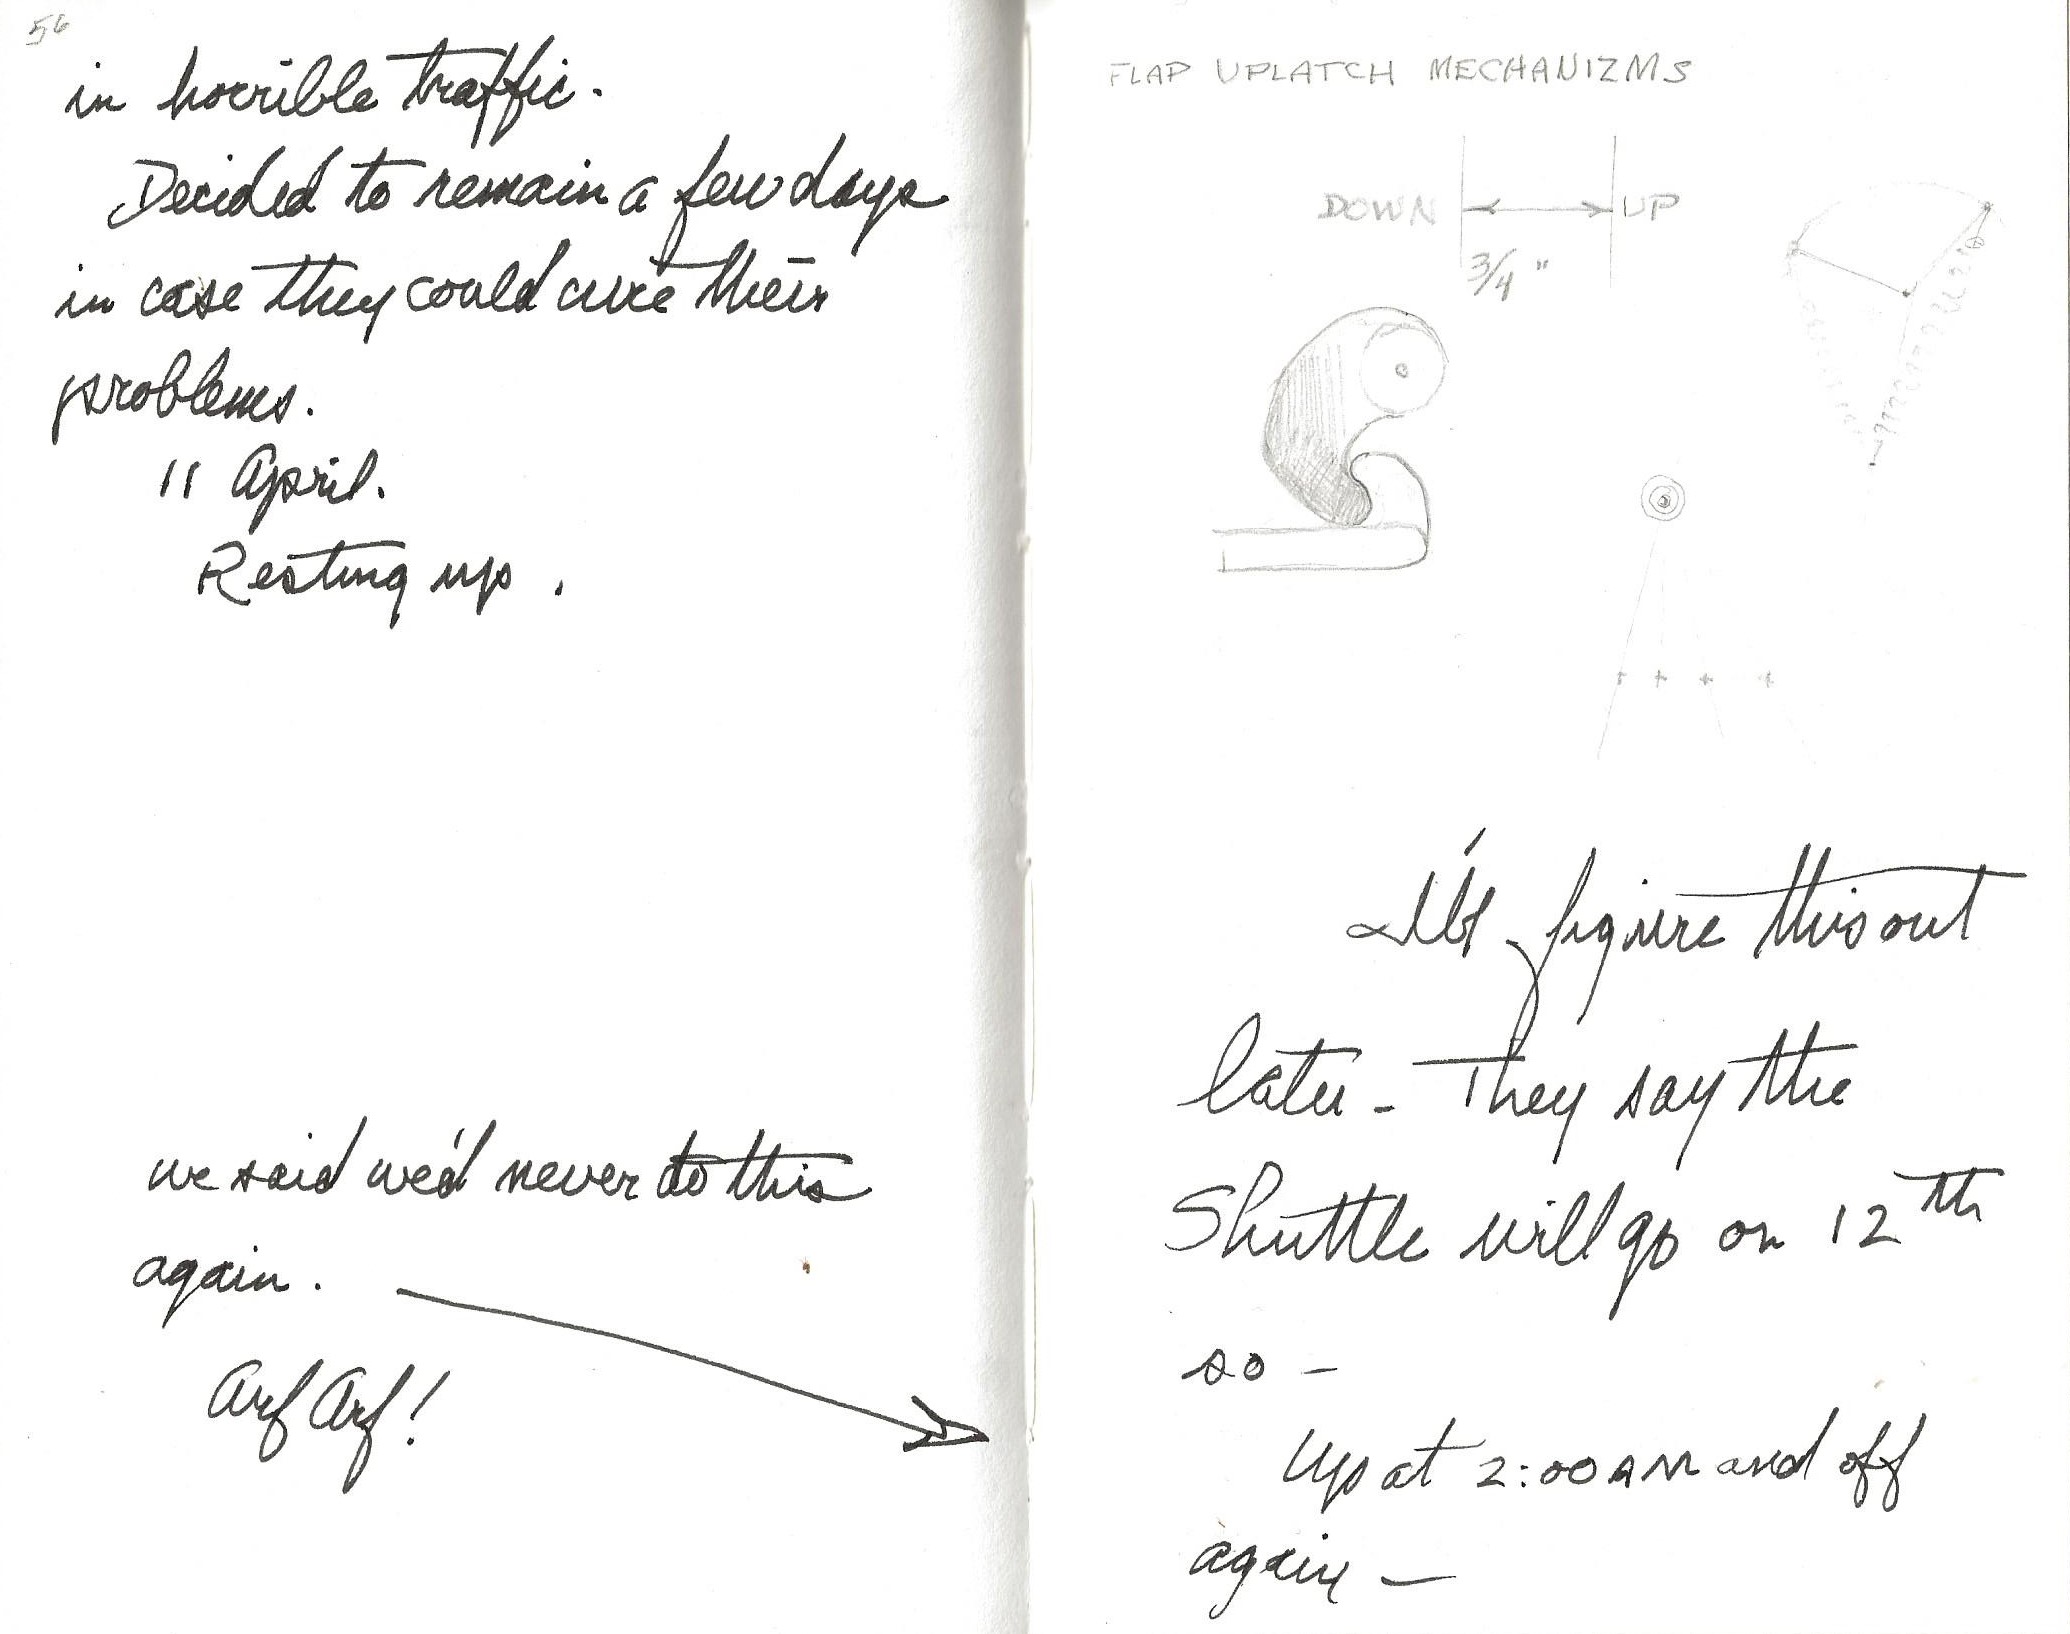 56
in horrible traffic.
Decided to remain a few days
in case they could cure their
problems.
11 April.
Resting up.
we said we'd never do this
again.
Arf Arf!
FLAP UPLATCH MECHANIZMS
DOWN UP
3/4"
I'll figure this out
later - They say the
Shuttle will go on 12th
so -
Up at 2:00 AM and off
again -